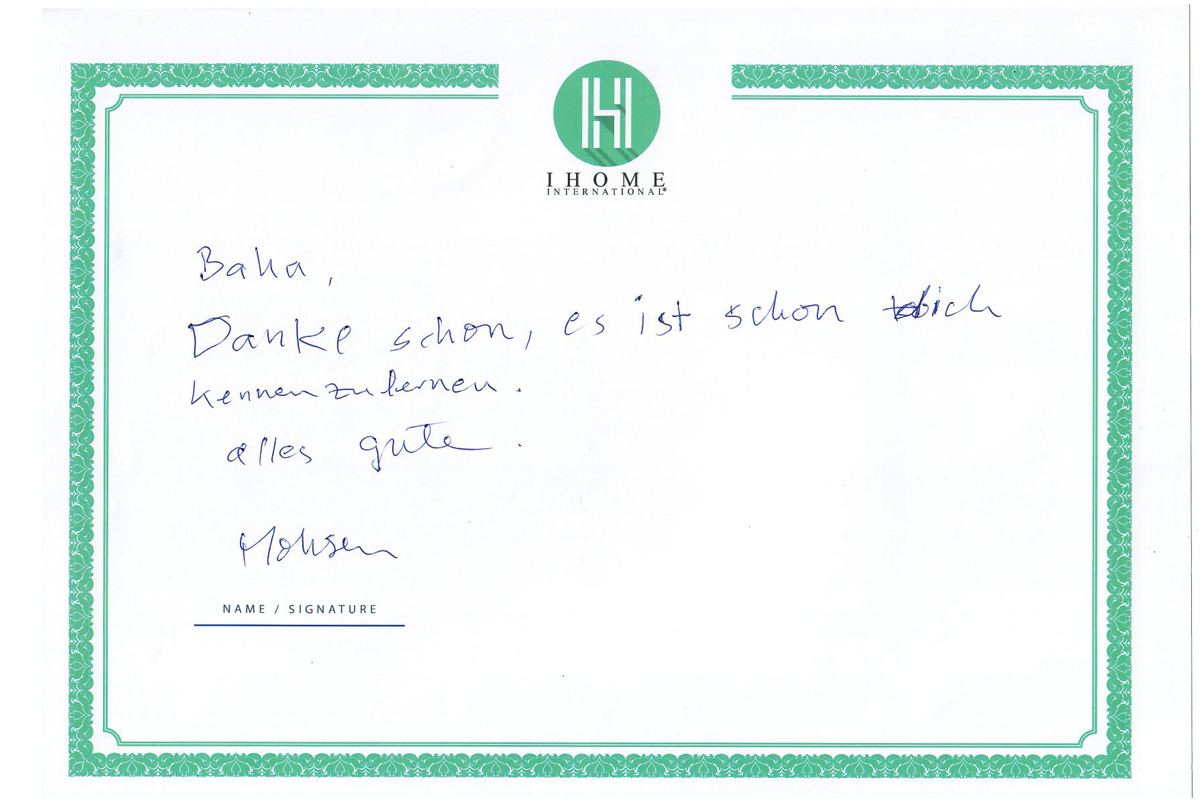 IHOME
INTERNATIONAL®
Baha,
Danke schon, es ist schon dich
kennenzulernen.
alles gute.
Mohsen
NAME / SIGNATURE